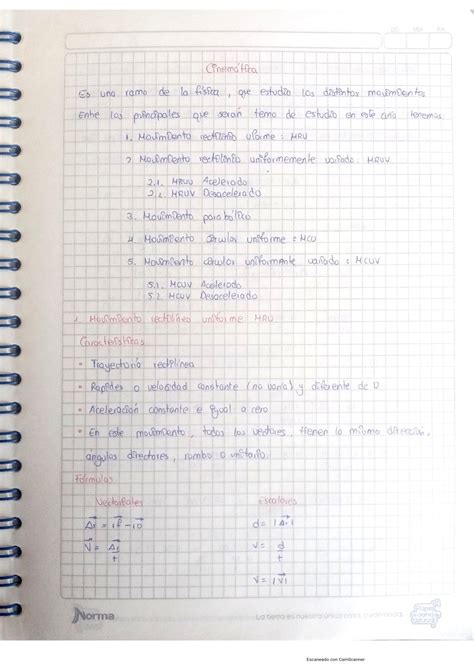 Cinemática
Es una rama de la física, que estudia los distintos movimientos
Entre los principales que serán tema de estudio en este año tenemos
1. Movimiento rectilínio uforme: MRU
2 Movimiento rectilínio uniformemente variado: MRUV
2.1. MRUV Acelerado
2.2. MRUV Desacelerado
3. Movimiento parabólico
4. Movimiento circular uniforme: MCU
5. Movimiento circular uniformente variado: MCUV
5.1. MCUV Acelerado
5.2. MCUV Desacelerado
1. Movimiento rectilíneo uniforme: MRU
Características
• Trayectoria rectilínea
• Rapides o velocidad constante (no varia) y diferente de 0
• Aceleración constante e igual a cero
• En este movimiento, todos los vectores, tienen la misma dirección,
ángulos directores, rumbo o unitario.
Fórmulas
Vectoriales Escalares
Δr = rf - r0 d = |Δr|
V = Δr v = d
t t
v = |V|
Norma
La tierra es nuestra única casa, cuidémosla.
Escaneado con CamScanner